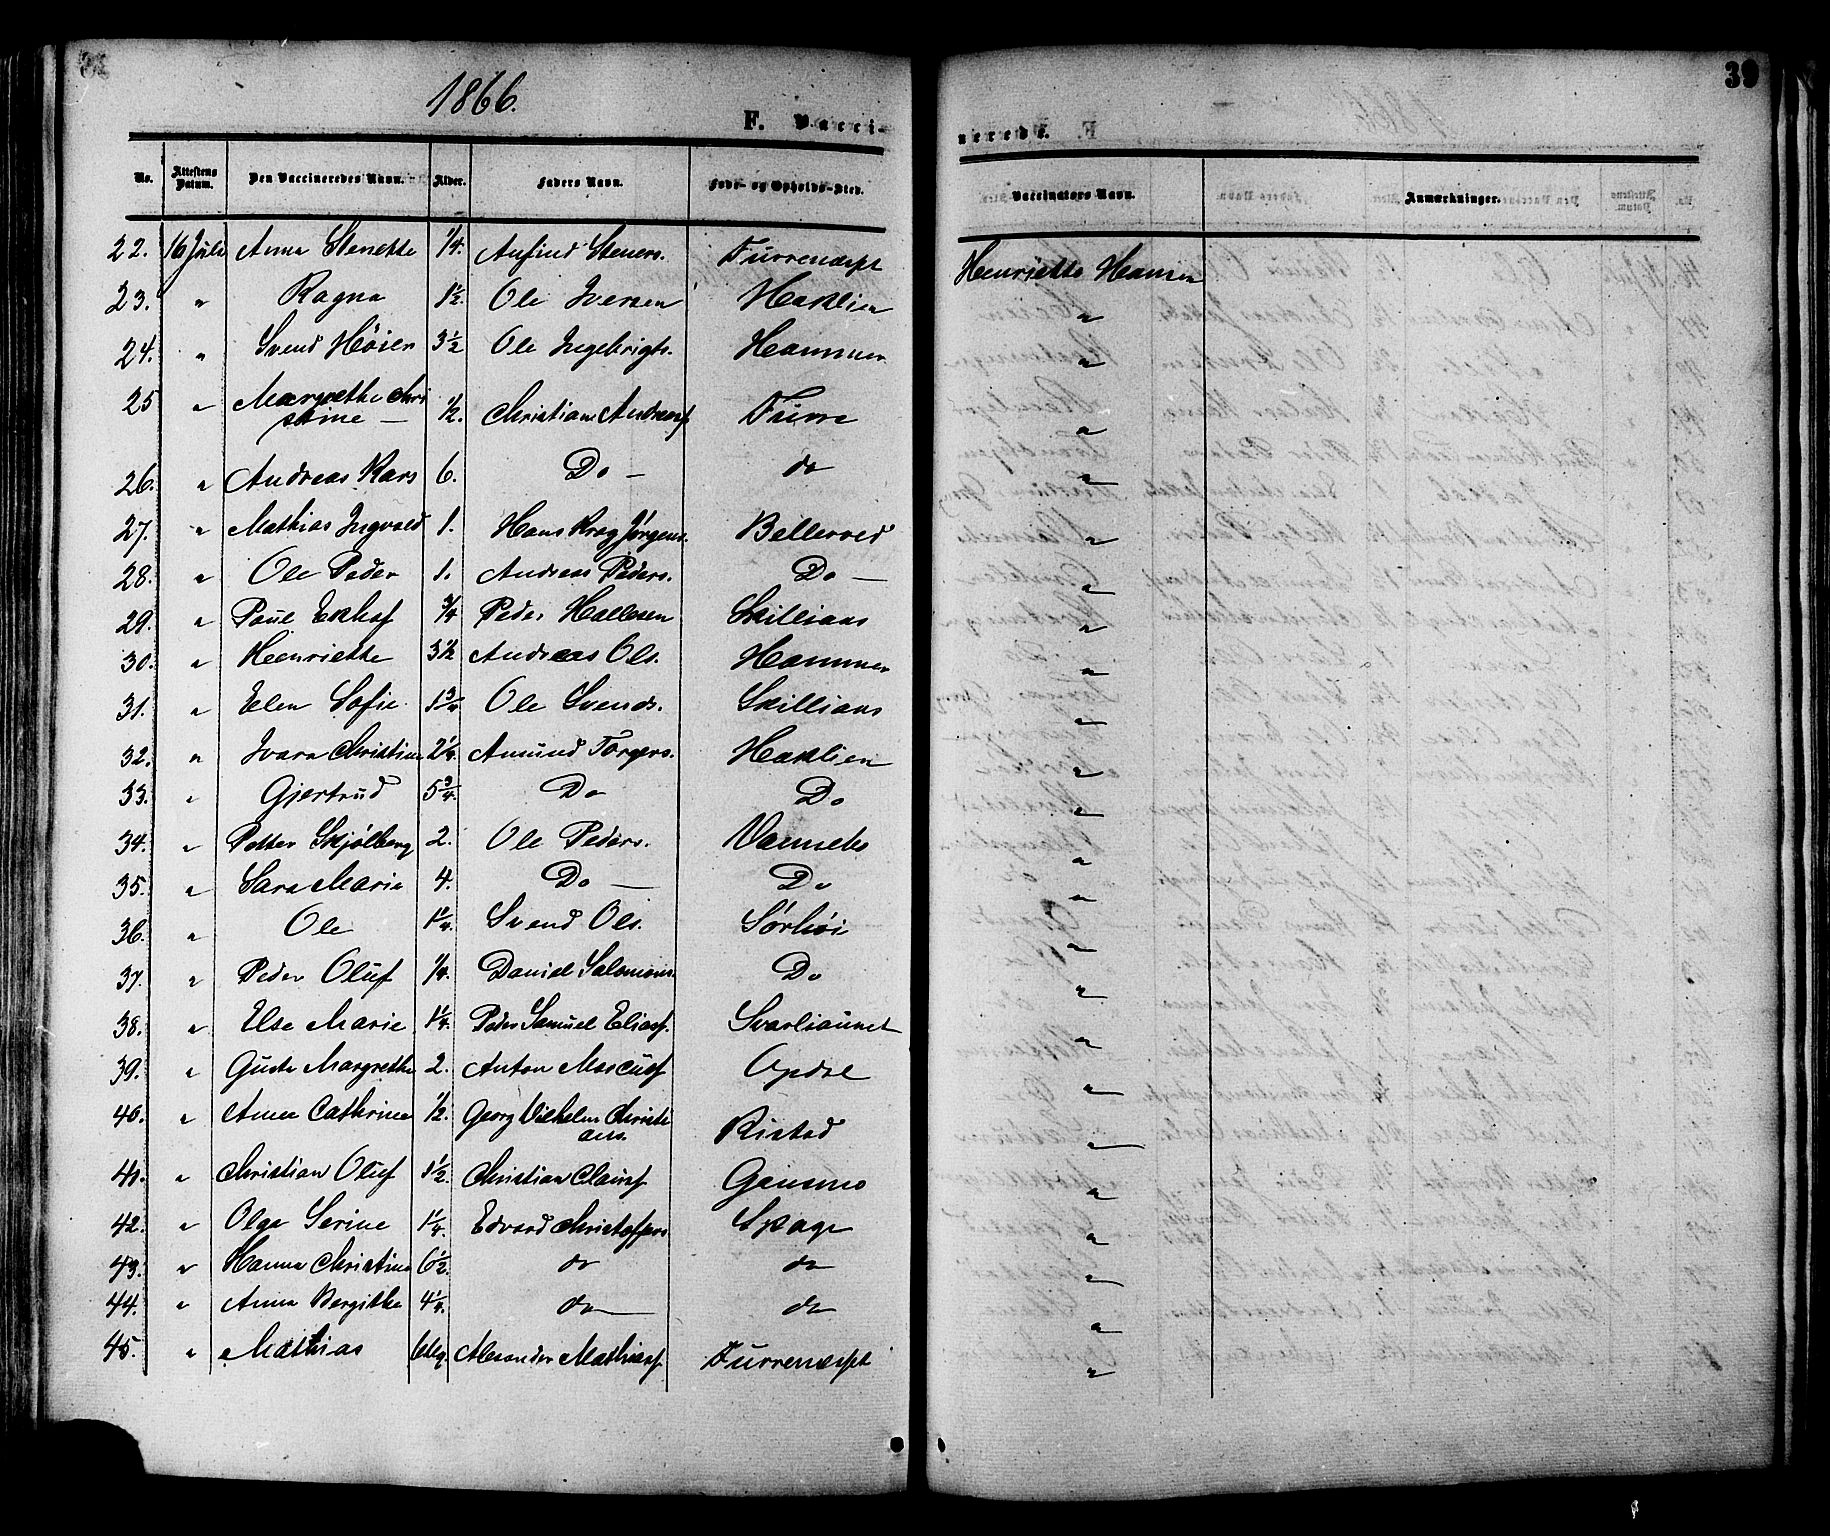 1866.
39
F. Vacci-
nerede.
No.
Attestens Datum.
Den Vaccineredes Navn.
Alder.
Faders Navn.
Føde- og Opholds-Sted.
Vaccinators Navn.
Anmærkninger.
22. 16 Juli Anna Stenette 1/4. Anfind Steners. Furrenæspt Henriette Hansen
23. " Ragna 1 1/2. Ole Iversen Haklien "
24. " Svend Høier 3 1/2 Ole Ingebrigts. Hammer "
25 " Margrethe Chri
stine — 1/2. Christian Andreas Furre "
26. " Andreas Kars 6. Do — do "
27. " Mathias Ingvald 1. Hans Krag Jørgens. Bellerved "
28. " Ole Peder 1. Andreas Peders. Do — "
29. " Paul Ekhof 3/4 Peder Hallesen Skillians "
30. " Henriette 3 1/2 Andreas Ols. Hammer "
31. " Elen Sofie 1 3/4 Ole Svends. Skillians "
32. " Ivara Christine 2 1/4. Amund Torgers. Haklien "
33. " Gjertrud 5 3/4. Do Do "
34. " Petter Skjølberg 2. Ole Peders. Vannebo "
35. " Sara Marie 4. Do — Do "
36. " Ole 1 1/4. Svend Ols. Sørhøi "
37. " Peder Oluf 1/4. Daniel Salomons. Do "
38. " Else Marie 1 1/4. Peder Samuel Eliass. Svarliaunet "
39. " Gusta Margrethe 2. Anton Marcuss Opdal "
40. " Anna Cathrine 1/2. Georg Vilhelm Christi
ans. Ristad "
41. " Christian Oluf 1 1/2. Christian Clauss Gausmo "
42. " Olga Serine 1 1/4. Edvard Christoffers Spage "
43. " Hanna Christine 6 1/2. do do "
44. " Anna Bergithe 4 1/4. do — do "
45. " Mathias Alexander Mathiass Furrenæspt "